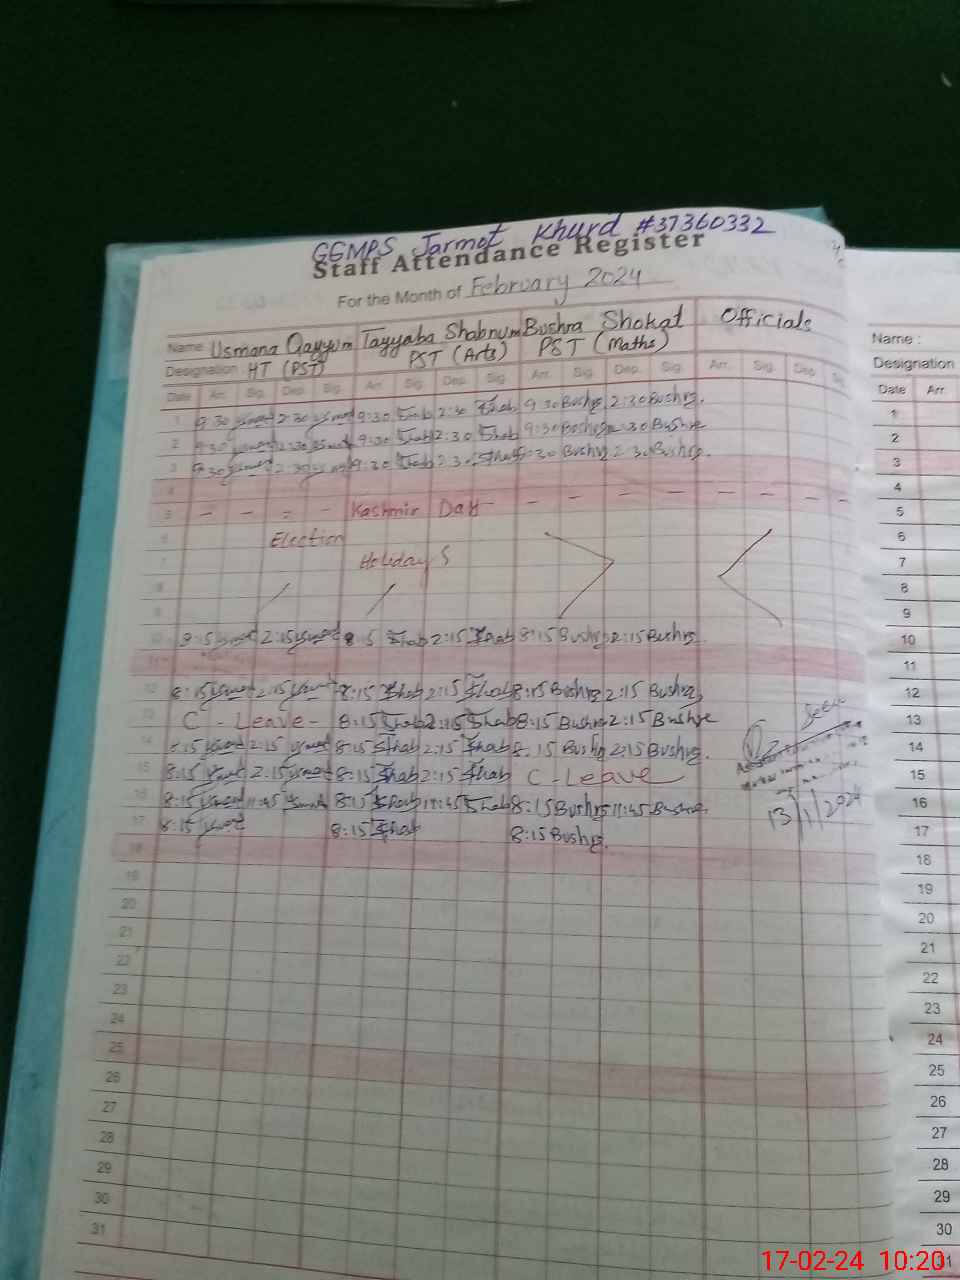 GGMPS Jarmot Khurd #37360332
Staff Attendance Register
For the Month of February 2024
Name: Usmana Qayyum Tayyaba Shabnum Bushra Shokat Officials
Designation: HT (PST) PST (Arts) PST (Maths)
Date Arr. Sig. Dep. Sig. Arr. Sig. Dep. Sig. Arr. Sig. Dep. Sig. Arr. Sig. Dep.
1 9:30 2:30 9:30 Shab 2:30 Shab 9:30 Bushra 2:30 Bushra.
2 9:30 2:30 9:30 Shab 2:30 Shab 9:30 Bushra 2:30 Bushra
3 9:30 2:30 9:30 Shab 2:30 Shab 9:30 Bushra 2:30 Bushra.
4
5 - - - - Kashmir Day - - - - - - - -
6 Election
7 Holidays
8
9
10 8:15 2:15 8:15 Shab 2:15 Shab 8:15 Bushra 2:15 Bushra.
11
12 8:15 2:15 8:15 Shab 2:15 Shab 8:15 Bushra 2:15 Bushra
13 C - Leave - 8:15 Shab 2:15 Shab 8:15 Bushra 2:15 Bushra
14 8:15 2:15 8:15 Shab 2:15 Shab 8:15 Bushra 2:15 Bushra.
15 8:15 2:15 8:15 Shab 2:15 Shab C - Leave
16 8:15 11:45 8:15 Shab 11:45 Shab 8:15 Bushra 11:45 Bushra.
17 8:15 8:15 Shab 8:15 Bushra.
Seen
13/1/2024
18
19
20
21
22
23
24
25
26
27
28
29
30
31
Name :
Designation
Date Arr.
1
2
3
4
5
6
7
8
9
10
11
12
13
14
15
16
17
18
19
20
21
22
23
24
25
26
27
28
29
30
31
17-02-24 10:20